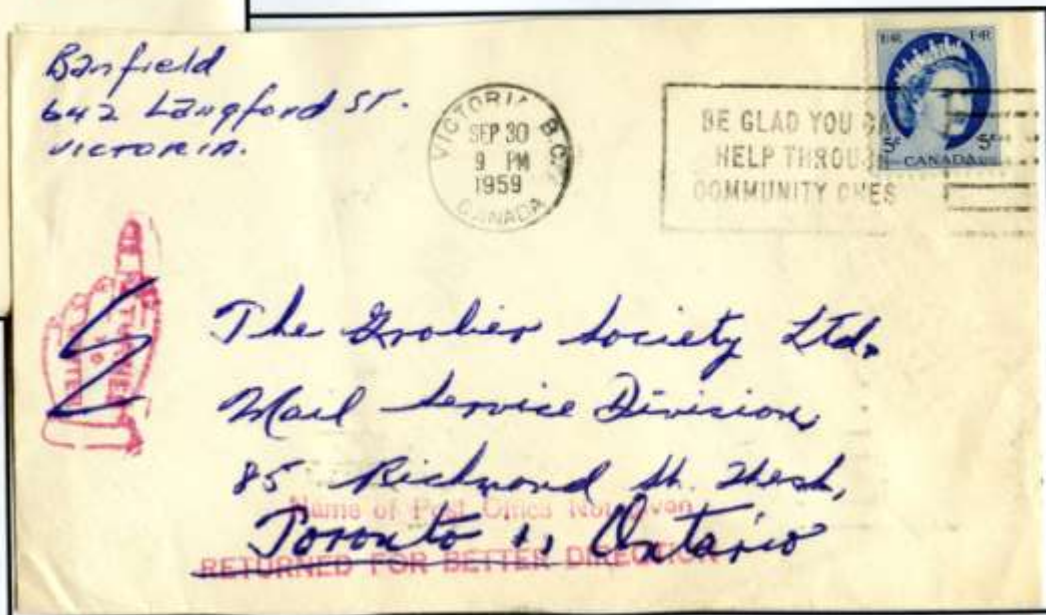 Banfield
642 Langford ST.
VICTORIA.
VICTORIA B.C.
SEP 30
9 PM
1959
CANADA
BE GLAD YOU CA
HELP THROUGH
COMMUNITY CHES
EIIR EIIR
5¢ 5¢
CANADA
RETURNED
TO
The Grolier Society Ltd.
Mail Service Division
85 Richmond St. West,
Name of Post Office Not Given
Toronto 1, Ontario
RETURNED FOR BETTER DIRECTION